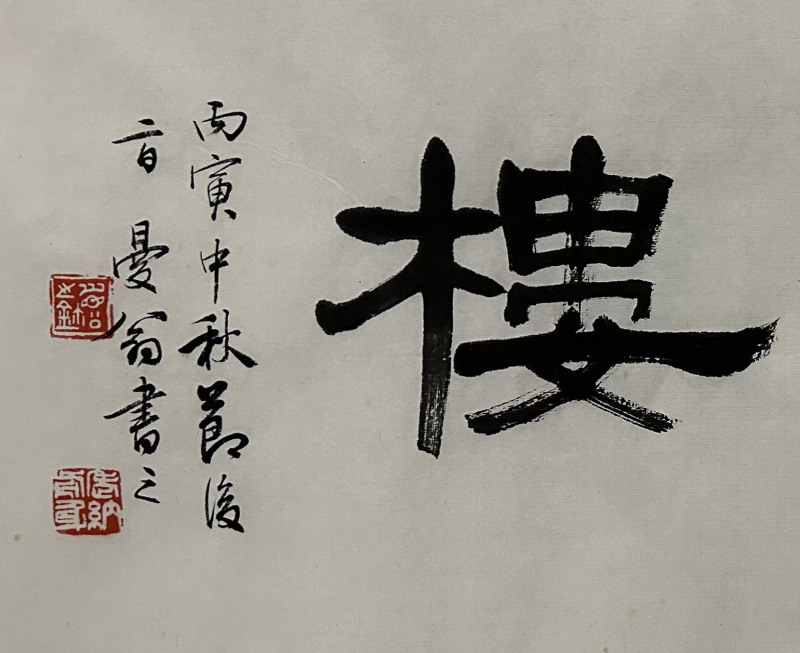 樓
丙寅中秋節後
二日 曼翁書之